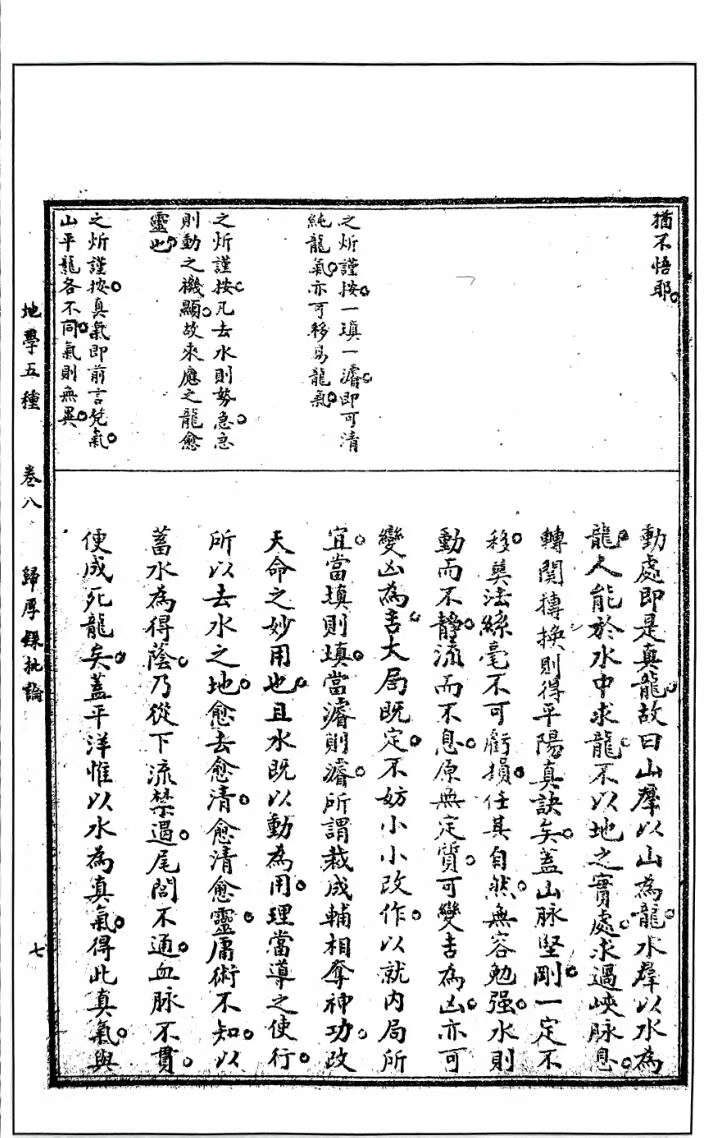 猶不悟耶
之炘謹按一填一濬即可清
純龍氣亦可移易龍氣
之炘謹按凡去水則勢急急
則動之機顯故來應之龍愈
靈也
之炘謹按真氣即前言兌氣
山平龍各不同氣則無異
動處即是真龍故曰山羣以山為龍水羣以水為
龍人能於水中求龍不以地之實處求過峽脉息
轉関摶換則得平陽真訣矣蓋山脉堅剛一定不
移葬法絲毫不可虧損任其自然無容勉强水則
動而不靜流而不息原無定質可變吉為凶亦可
變凶為吉大局既定不妨小小改作以就内局所
宜當填則填當濬則濬所謂裁成輔相奪神功改
天命之妙用也且水既以動為用理當導之使行
所以去水之地愈去愈清愈清愈靈庸術不知以
蓄水為得蔭乃從下流禁遏尾閭不通血脉不貫
便成死龍矣蓋平洋惟以水為真氣得此真氣與
地學五種
卷八
歸厚錄批論
七